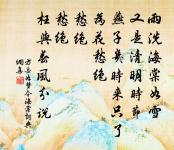 雨洗海棠如雪
又是清明時節
燕子幾時來只了
為花愁絕
愁絕
愁絕
枉與春風分說
方岳如夢令海棠